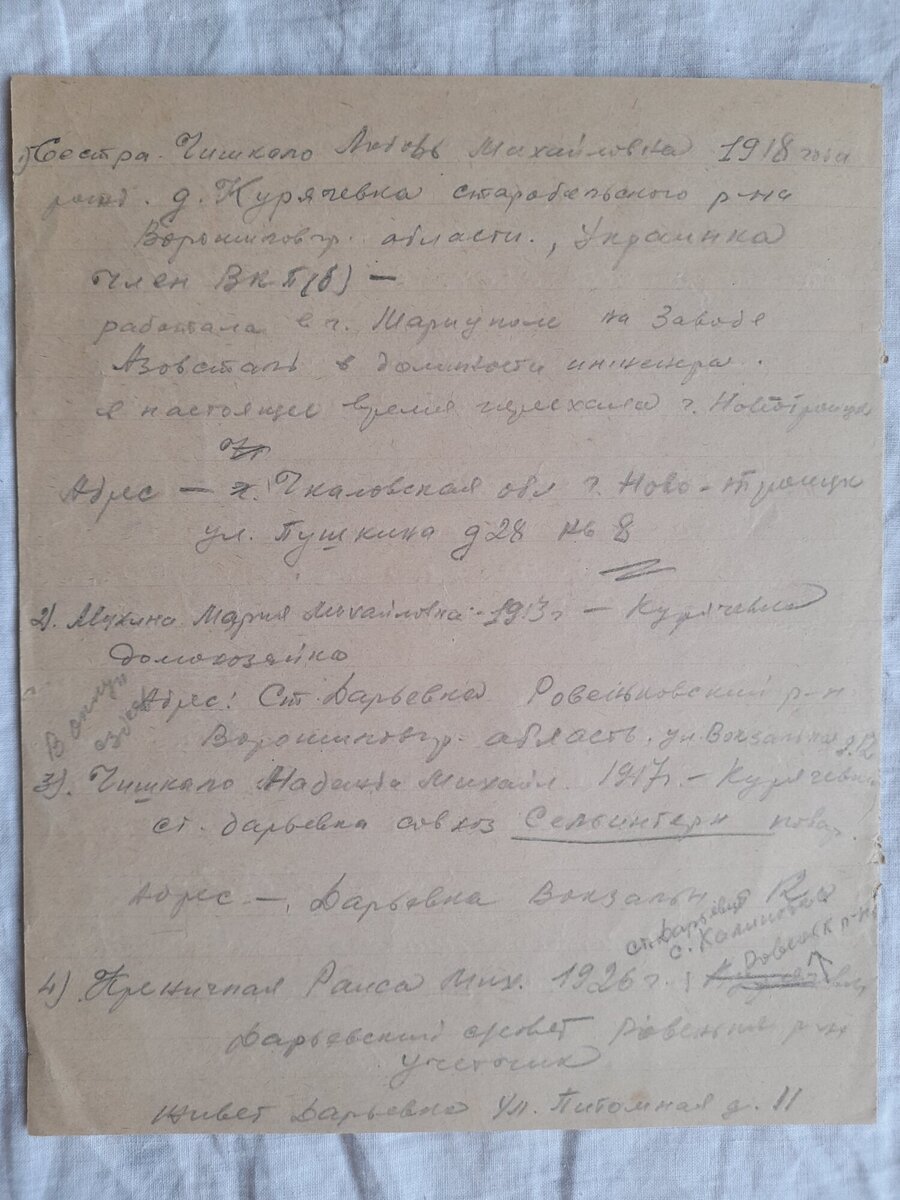 1) Сестра. Чишкало Любовь Михайловна 1918 года
рожд. д. Курячевка старобельского р-на
Ворошиловгр. области., Украинка
Член ВКП(б) —
работала в г. Мариуполе на Заводе
Азовсталь в должности инженера.
в настоящее время переехала г. Новотроицк
Адрес — Чкаловская обл г. Ново-троицк
ул. Пушкина д 28 кв 8
2). Мария Михайловна - 1913 г — Курячевка
домохозяйка
Адрес: Ст. Дарьевка Ровеньковский р-н
Ворошиловгр. область. ул. Вокзальная д. 12
3). Чишкало Надежда Михайл. 1917г. — Курячевка
ст. Дарьевка совхоз Сельинтерн повар.
Адрес —, Дарьевка Вокзальн 12
ст. Дарьевка
с. Калиновка
Ровеньк р-на
4) Раиса Мих. 1926 г.
Дарьевский с/совет Ровеньк р-н
учетчик
живет Дарьевка Ул. Питомная д. 11